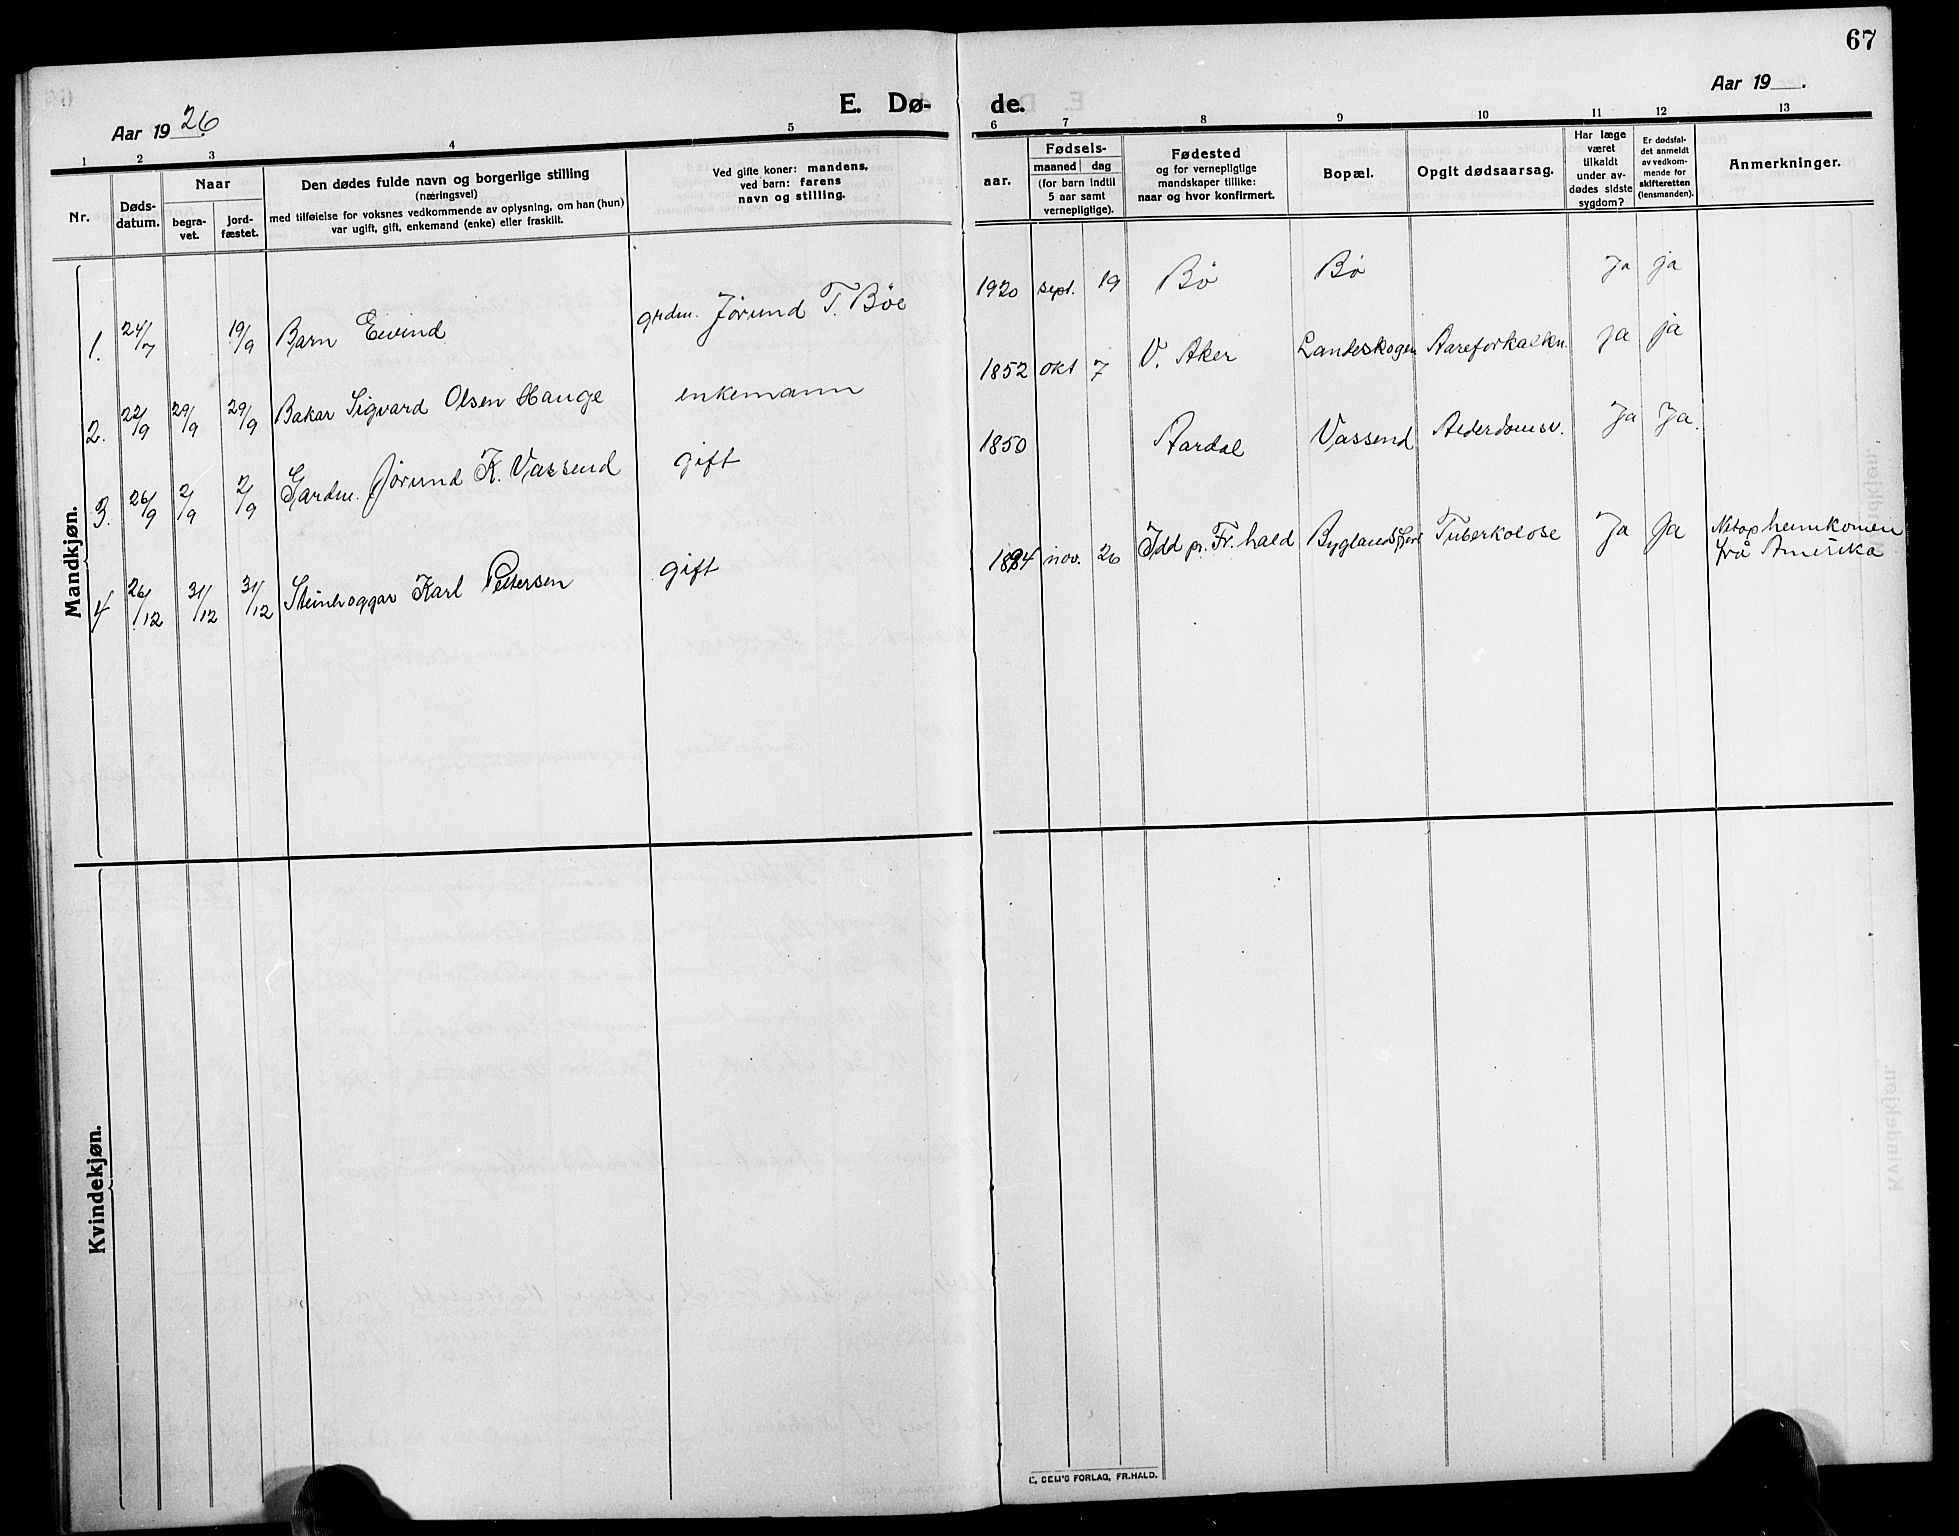 67
Aar 1926
E. Dø-
de.
Aar 19 .
1 2 3 4 5
6 7 8 9 10 11 12 13
Nr.
Døds-
datum.
Naar
begra-
vet.
jord-
fæstet.
Den dødes fulde navn og borgerlige stilling
(næringsvei)
med tilføielse for voksnes vedkommende av oplysning, om han (hun)
var ugift, gift, enkemand (enke) eller fraskilt.
Ved gifte koner: mandens,
ved barn: farens
navn og stilling.
aar.
Fødsels-
maaned dag
(for barn indtil
5 aar samt
vernepligtige).
Fødested
og for vernepligtige
mandskaper tillike:
naar og hvor konfirmert.
Bopæl.
Opgit dødsaarsag.
Har læge
været
tilkaldt
under av-
dødes sidste
sygdom?
Er dødsfal-
det anmeldt
av vedkom-
mende for
skifteretten
(lensmanden).
Anmerkninger.
Mandkjøn.
1. 24/7 19/9 Barn Eivind grdm. Jørund T. Bøe 1920 sept. 19 Bø Bø Ja ja
2. 22/9 29/9 29/9 Bakar Sigvard Olsen Hauge enkemann 1852 okt 7 V. Aker Landeskogen Aareforkalkn. Ja ja
3. 26/9 2/9 2/9 Gardm. Jørund K. Vassend gift 1850 Aardal Vassend Alderdomsv. Ja Ja.
4 26/12 31/12 31/12 Steinhoggar Karl Pettersen gift 1894 nov. 26 Idd pr. Fr.hald Byglandsfjord Tuberkolose Ja Ja Netop heimkomen
frå Amerika
Kvindekjøn.
E. SEM'S FORLAG, FR.HALD.